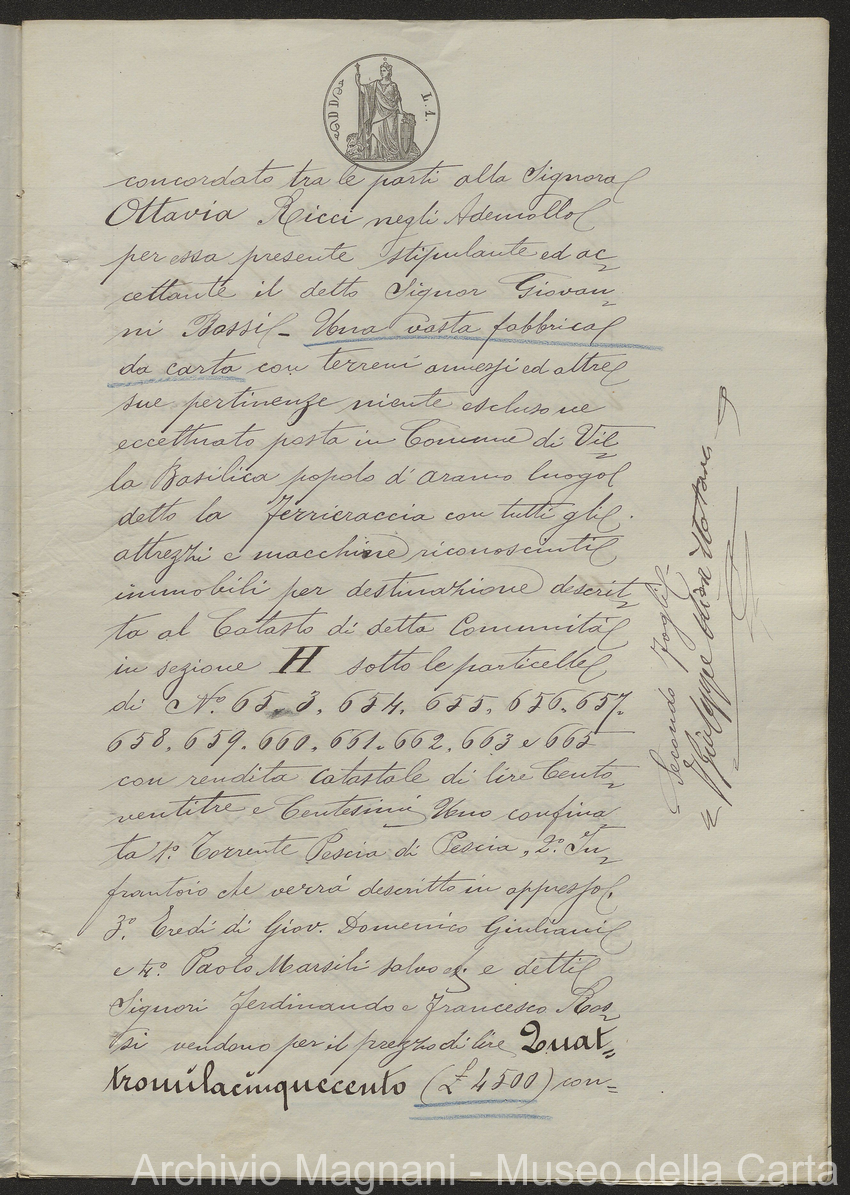 L. 1.
concordato tra le parti alla Signora
Ottavia Ricci negli Ademollo
per essa presente stipulante ed ac=
cettante il detto Signor Giovan=
ni Bassi - Una vasta fabbrica
da carta con terreni annessi ed altre
sue pertinenze niente escluso ne
eccettuato posta in Comune di Vil=
la Basilica popolo d'Aramo luogo
detto la Ferricraccia con tutti gli
attrezzi e macchine riconosciuti
immobili per destinazione descrit=
ta al Catasto di detta Comunità
in sezione H sotto le particelle
di N.º 653, 654, 655, 656, 657.
658, 659, 660, 661, 662, 663 e 665
con rendita catastale di lire Cento
ventitre e Centesimi Uno confina=
ta 1º. Torrente Pescia di Pescia, 2º. In=
frantoio che verrà descritto in appresso,
3º. Eredi di Giov. Domenico Giuliani
e 4º Paolo Marsili salvo e detti
Signori Ferdinando e Francesco Ros=
si vendono per il prezzo di lire Quat=
tromilacinquecento (£ 4500) con=
Secondo Foglio
Giuseppe
Archivio Magnani - Museo della Carta